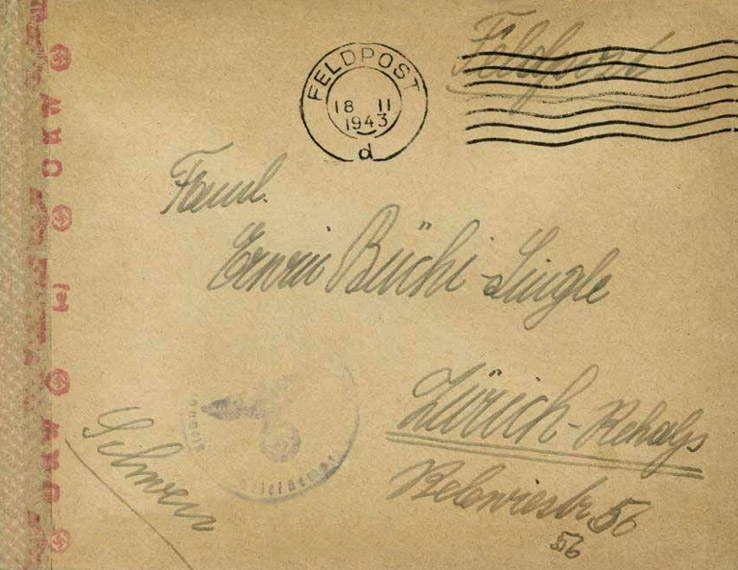 Feldpost
FELDPOST
18 11
1943
d
Faml.
Büchi-Lingle
Zürich-Rehalp
56
56
Schweiz
OKW
(e)
OKW